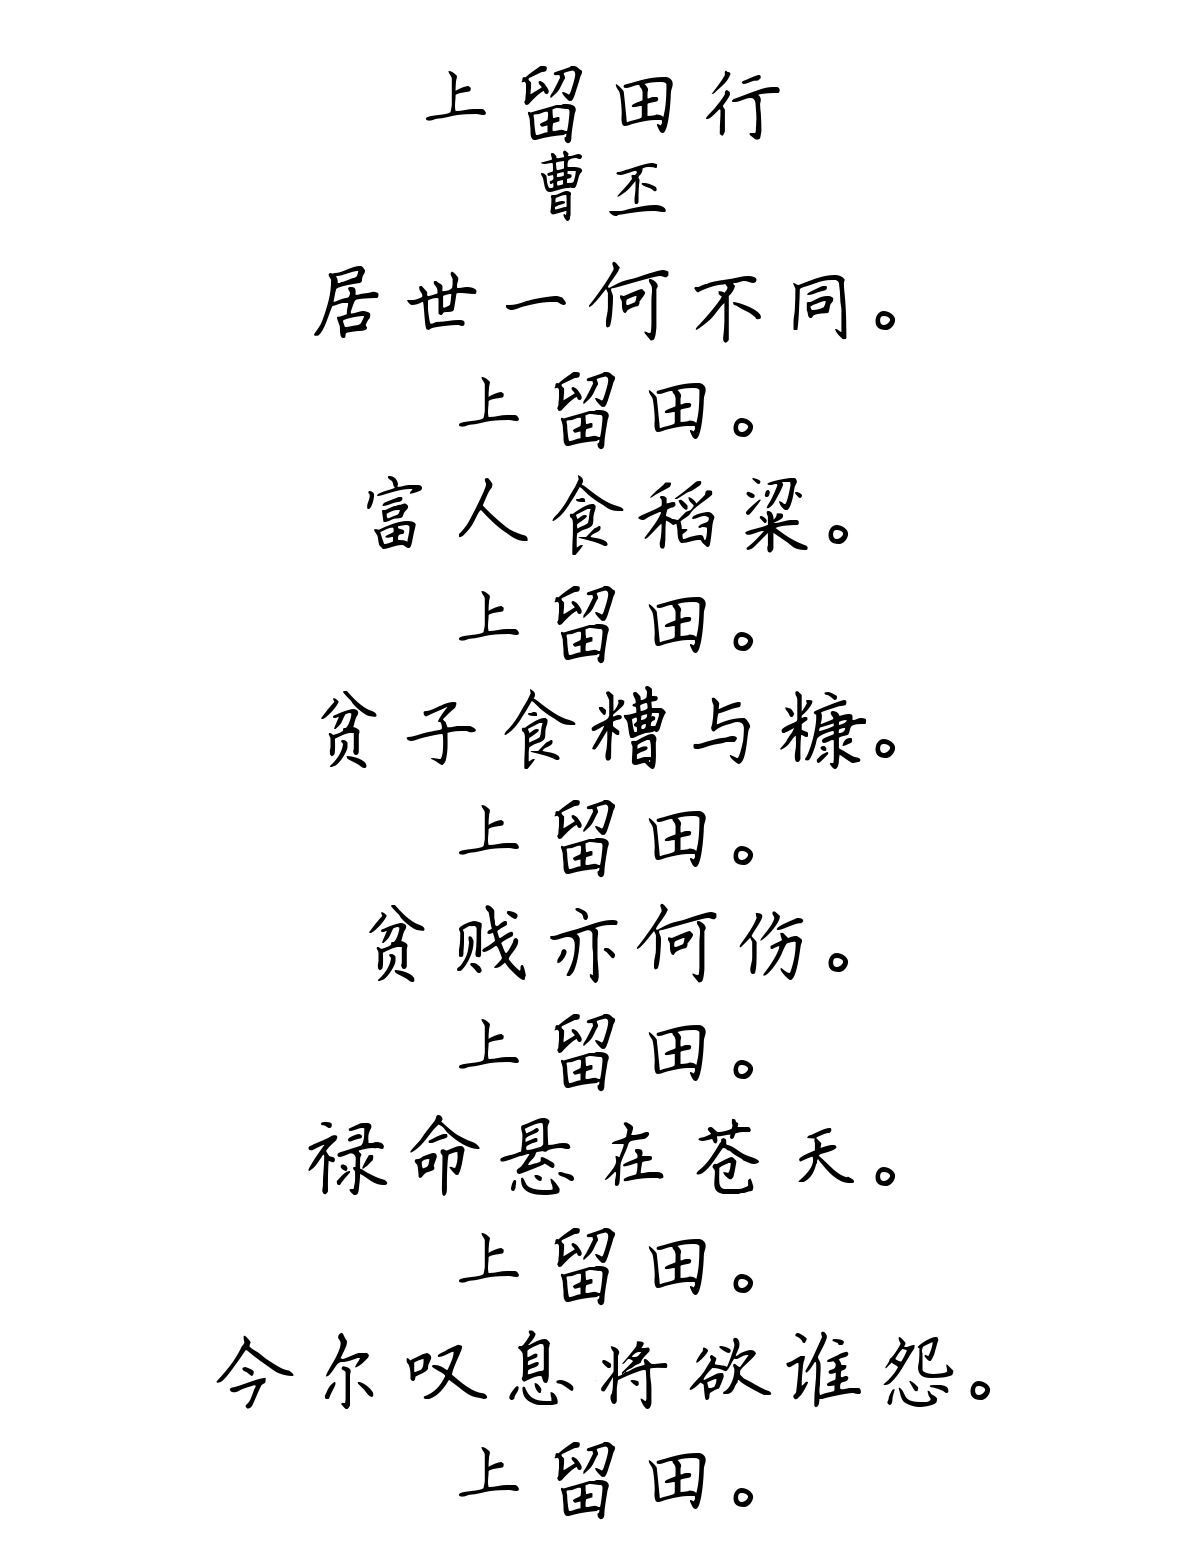 上留田行
曹丕
居世一何不同。
上留田。
富人食稻粱。
上留田。
贫子食糟与糠。
上留田。
贫贱亦何伤。
上留田。
禄命悬在苍天。
上留田。
今尔叹息将欲谁怨。
上留田。